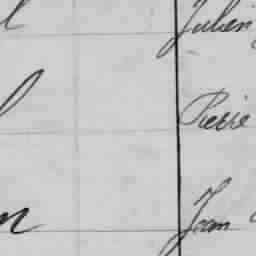 Julien
Pierre
Jean